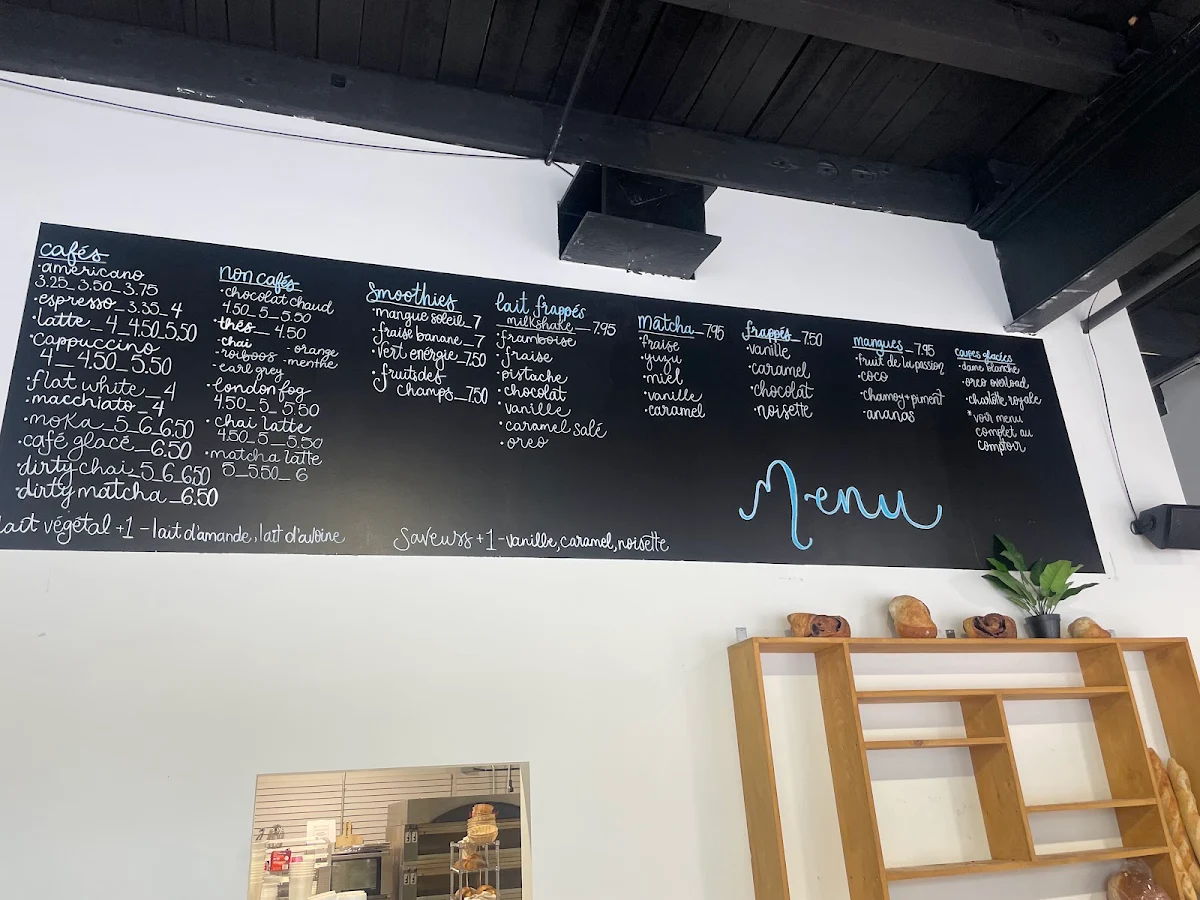 cafés
·americano
3.25_3.50_3.75
·espresso_3.35_4
·latte_4_4.50_5.50
·cappuccino
4_4.50_5.50
·flat white_4
·macchiato_4
·moka_5_6_6.50
·café glacé_6.50
·dirty chai_5_6_6.50
·dirty matcha_6.50
non cafés
·chocolat chaud
4.50_5_5.50
·thés_4.50
·chai
·roiboos ·orange
·menthe
·earl grey
·london fog
4.50_5_5.50
·chai latte
4.50_5_5.50
·matcha latte
5_5.50_6
Smoothies
·mangue soleil_7
·fraise banane_7
·vert énergie_7.50
·fruits des
champs_7.50
lait frappés
milkshake_7.95
·framboise
·fraise
·pistache
·chocolat
·vanille
·caramel salé
·oreo
matcha_7.95
·fraise
·yuzu
·miel
·vanille
·caramel
frappés_7.50
·vanille
·caramel
·chocolat
·noisette
mangues_7.95
·fruit de la passion
·coco
·chamoy+piment
·ananas
coupes glacées
·dame blanche
·oreo overload
·charlotte royale
*voir menu
complet au
comptoir
Menu
lait végétal +1 - lait d'amande, lait d'avoine
Saveurs +1 - vanille, caramel, noisette